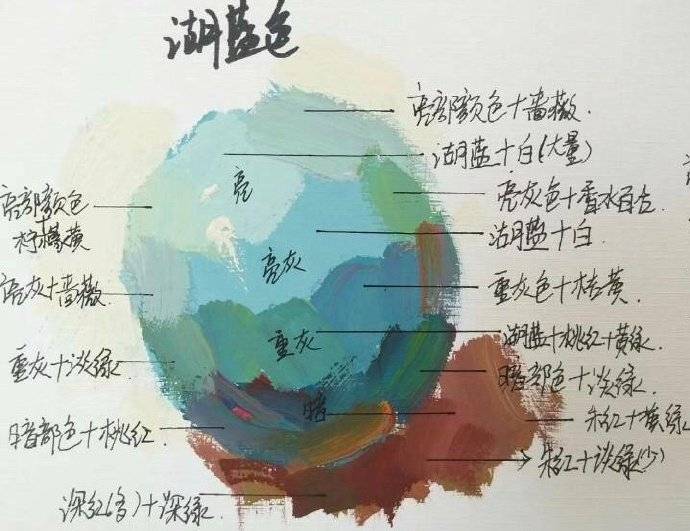 湖蓝色
亮部颜色+蔷薇.
湖蓝+白(大量)
亮灰色+香水百合.
湖蓝+白.
重灰色+桔黄.
湖蓝+桃红+黄绿.
暗部色+淡绿.
朱红+黄绿
朱红+淡绿(少)
亮部颜色
柠檬黄
亮灰+蔷薇.
重灰+淡绿
暗部色+桃红.
深红(多)+深绿.
亮
亮灰
重灰
暗